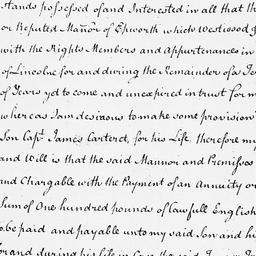 stands possessed of and Interested in all that th
or Reputed Mannor of Epworth which Westwood g
with the Rights Members and appurtenances in
of Lincolne for and during the Remainder of a Te
of Years yet to come and unexpired in trust for m
whereas I am desirous to make some provision
Son Capt. James Carteret, for his Life, therefore my
and Will is that the said Mannor and Premisses
and Chargable with the Payment of an Annuity or
Sum of One hundred pounds of Lawfull English
to be paid and payable unto my said Son and his
for and during his life in Case the said